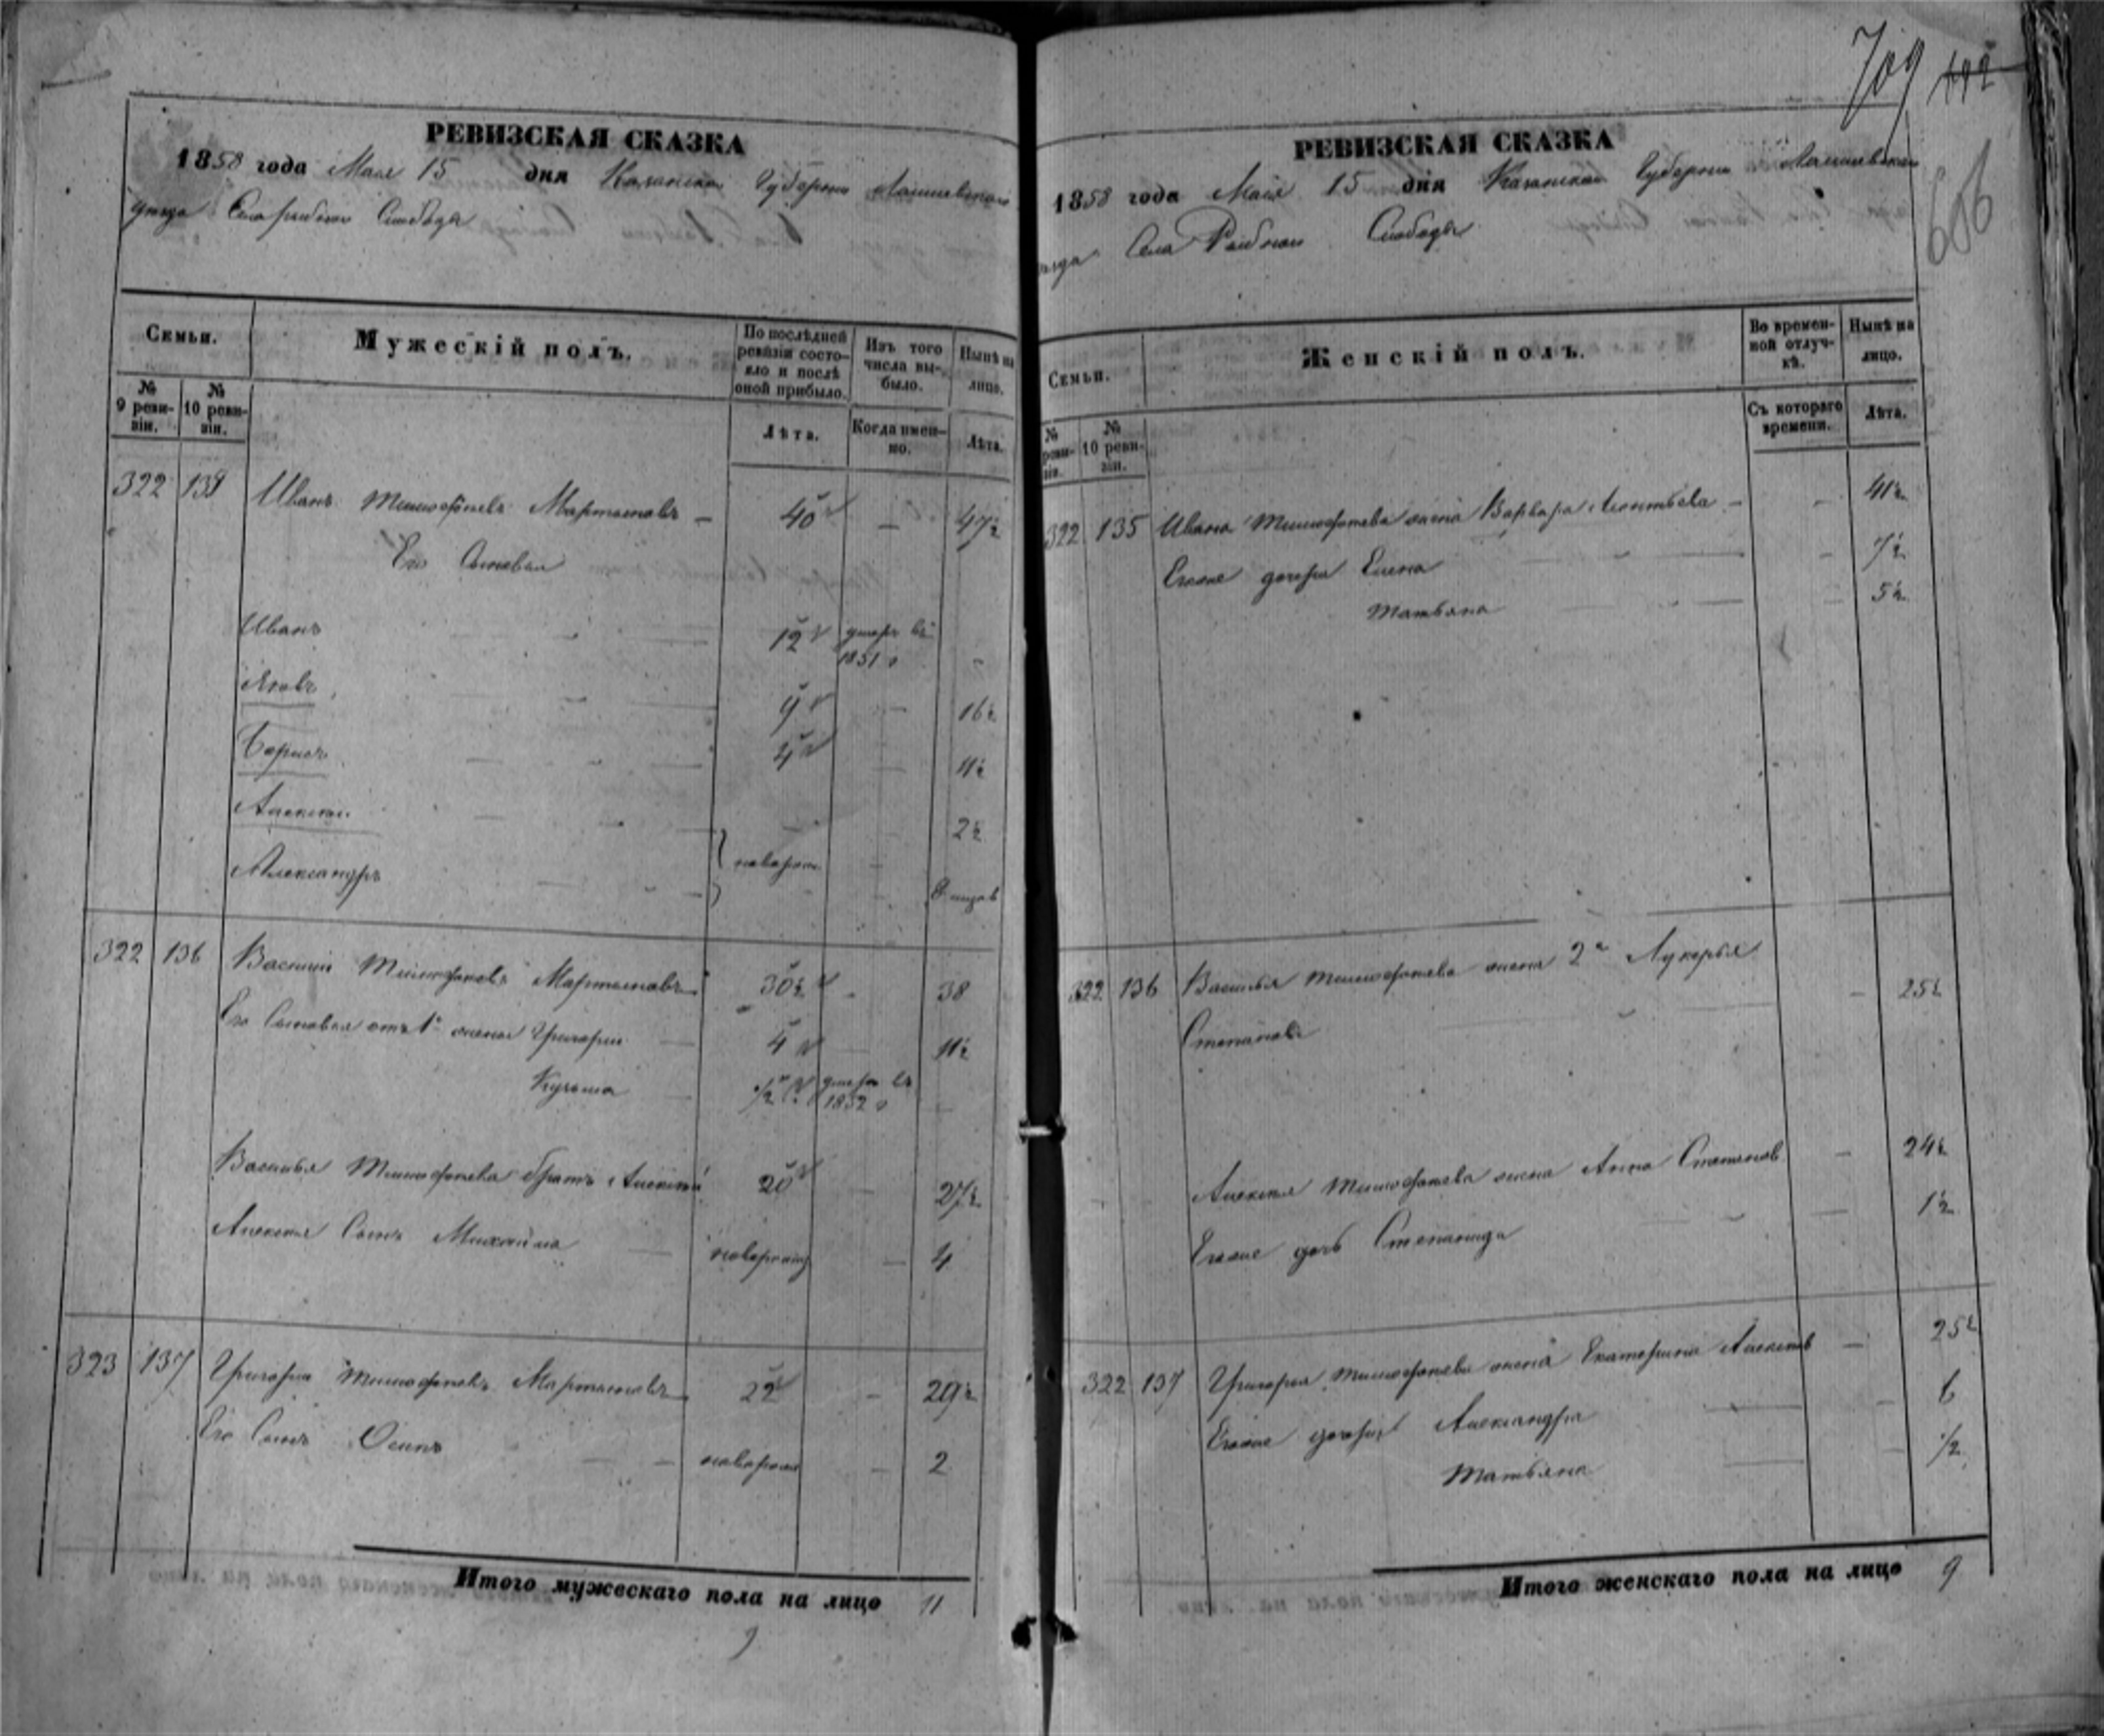 709
606
РЕВИЗСКАЯ СКАЗКА
1858 года Мая 15 дня Казанской Губернии Лаишевскаго
уезда Села Рыбной Слободы
Семьи.
Мужескій полъ.
По послѣдней ревизіи состояло и послѣ оной прибыло.
Изъ того числа выбыло.
Нынѣ на лицо.
№ 9 ревизіи.
№ 10 ревизіи.
Лѣта.
Когда именно.
Лѣта.
322 135 Иванъ Тимофѣевъ Мартыновъ — 40 — 47½
Его Сыновья
Иванъ 12 умеръ въ 1851 г -
Яковъ 9 — 16½
Борисъ 4 — 11½
Алексей 2½
Александръ новорож. 8 месяцов
322 136 Василий Тимофѣевъ Мартыновъ 30½ - 38
Его Сыновья отъ 1й жены Григорий 4 — 11½
Кузьма ½ умеръ въ 1852 г
Василья Тимофѣева братъ Алексей 20 — 27½
Алексея Сынъ Михайла новорожд — 4
323 137 Григорий Тимофѣевъ Мартыновъ 22 — 29½
Его Сынъ Осипъ новорож — 2
Итого мужескаго пола на лицо 11
РЕВИЗСКАЯ СКАЗКА
1858 года Мая 15 дня Казанской Губернии Лаишевскаго
уезда Села Рыбной Слободы
Семьи.
Женскій полъ.
Во временной отлучкѣ.
Нынѣ на лицо.
№ ревизіи.
№ 10 ревизіи.
Съ котораго времени.
Лѣта.
322 135 Ивана Тимофѣева жена Варвара Леонтьева — 41½
Ихние дочери Елена — 7½
Татьяна — 5½
322 136 Василья Тимофѣева жена 2я Лукерья
Степанова — 25½
Алексея Тимофѣева жена Анна Степанов — 24½
Ихние дочь Степанида — 1½
322 137 Григория Тимофѣева жена Екатерина Алексеев — 25½
Ихние дочери Александра — 6
Татьяна — ½
Итого женскаго пола на лицо 9